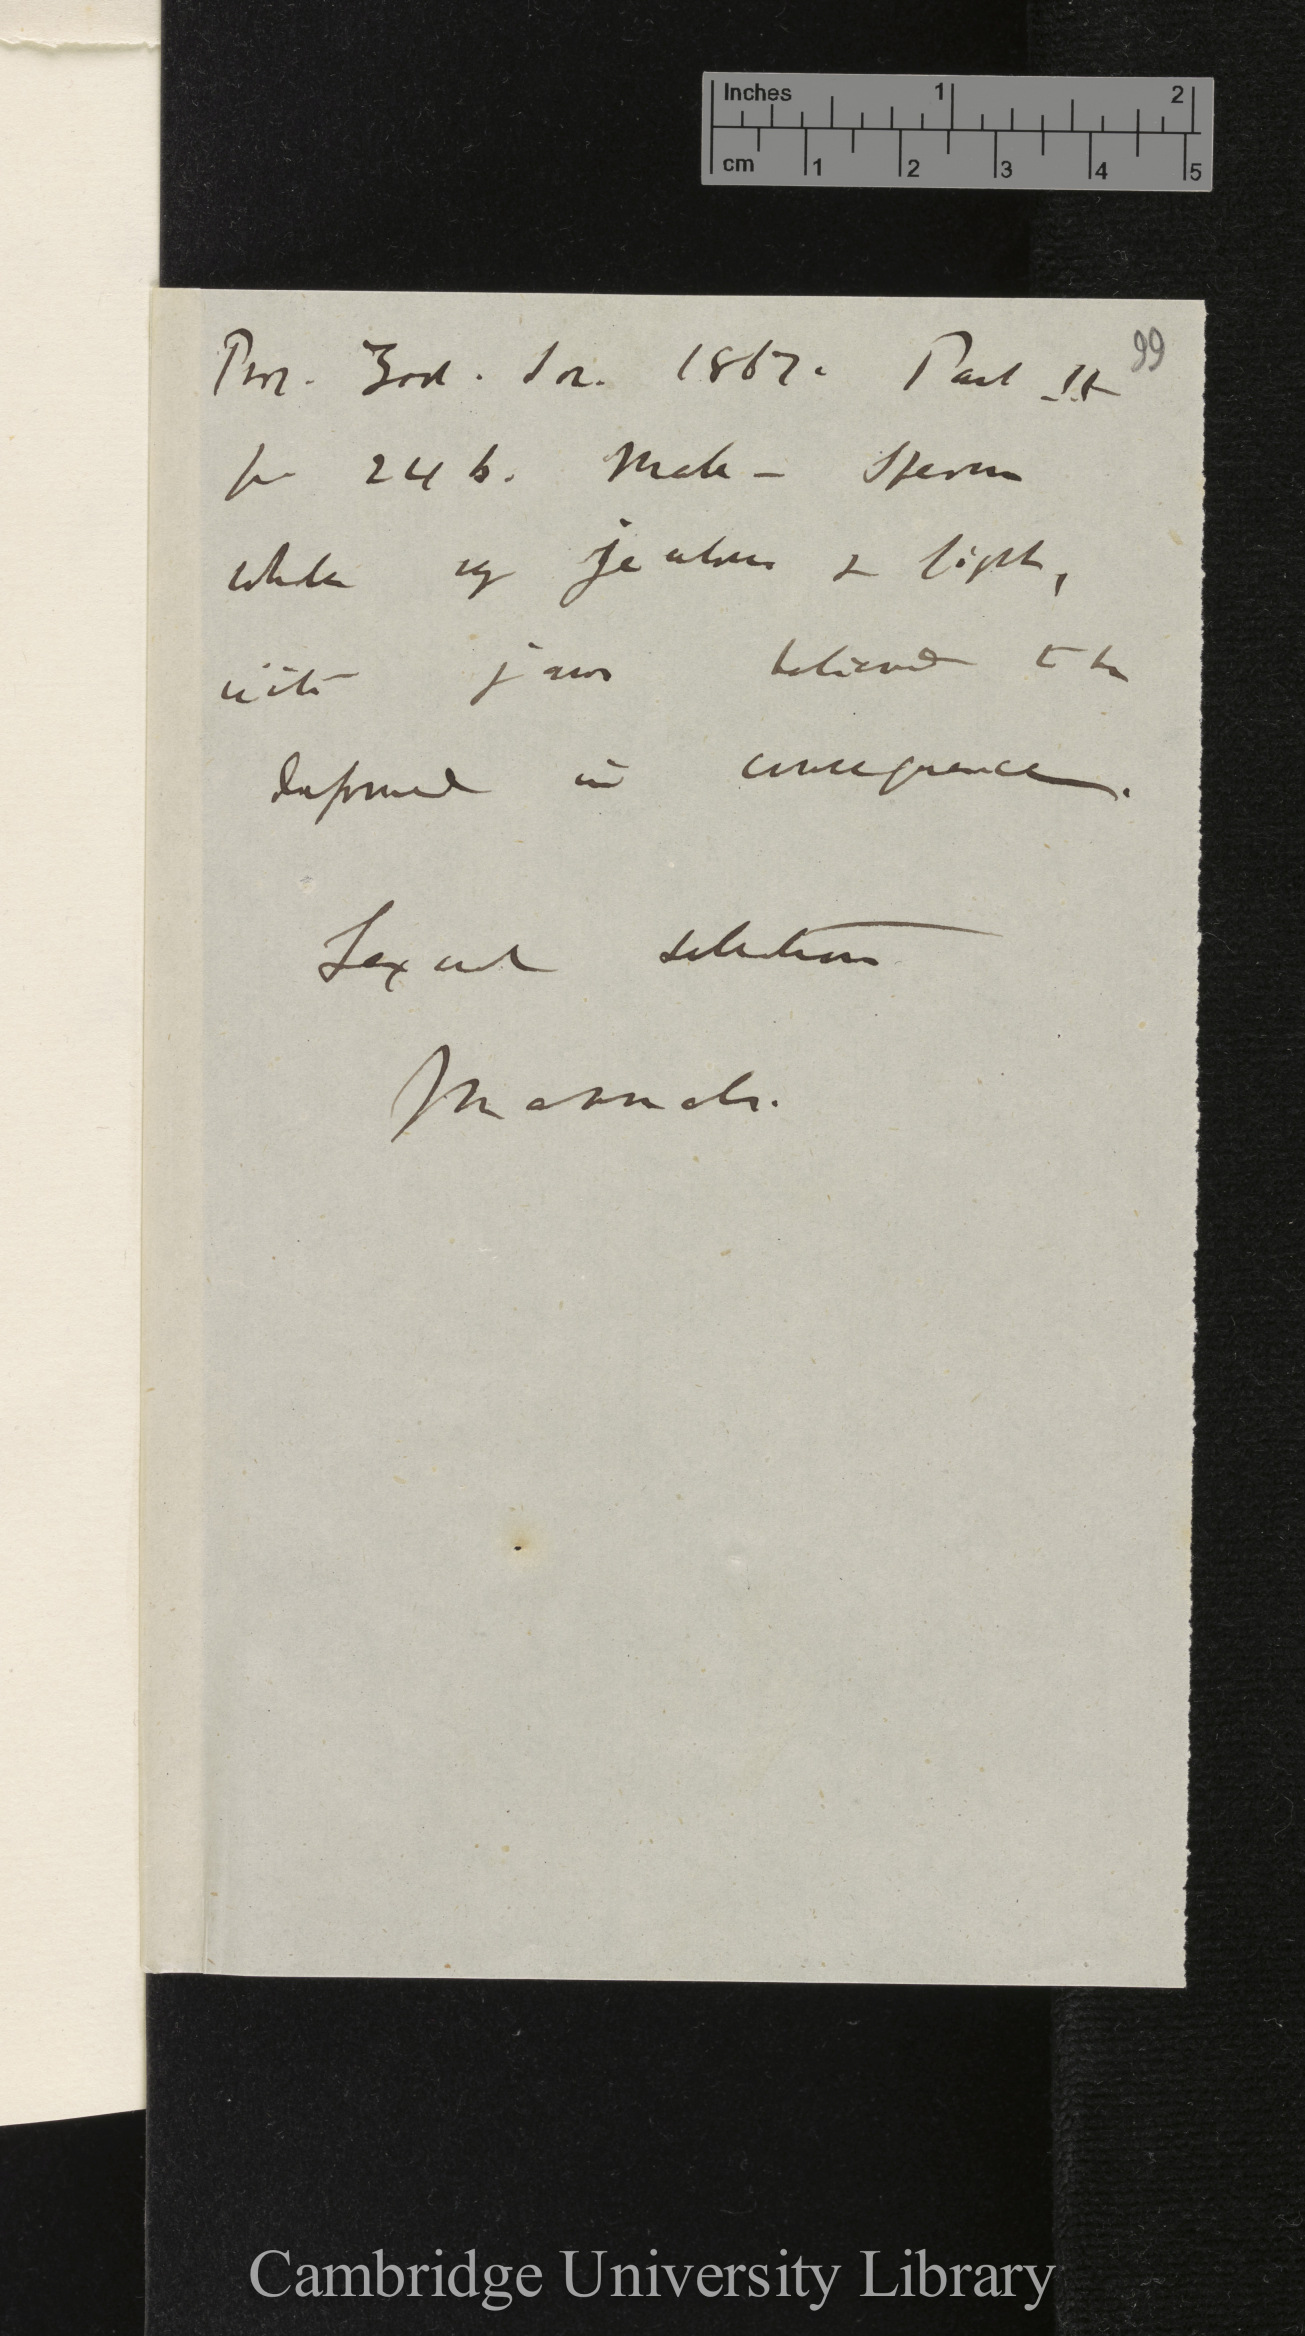 Inches 1 2
cm 1 2 3 4 5
99
Proc. Zool. Soc. 1867. Part II
p 246. Male — Sperm
whales very jealous & fight,
with jaws believed to be
deformed in consequence.
Sexual selection
Mammals.
Cambridge University Library